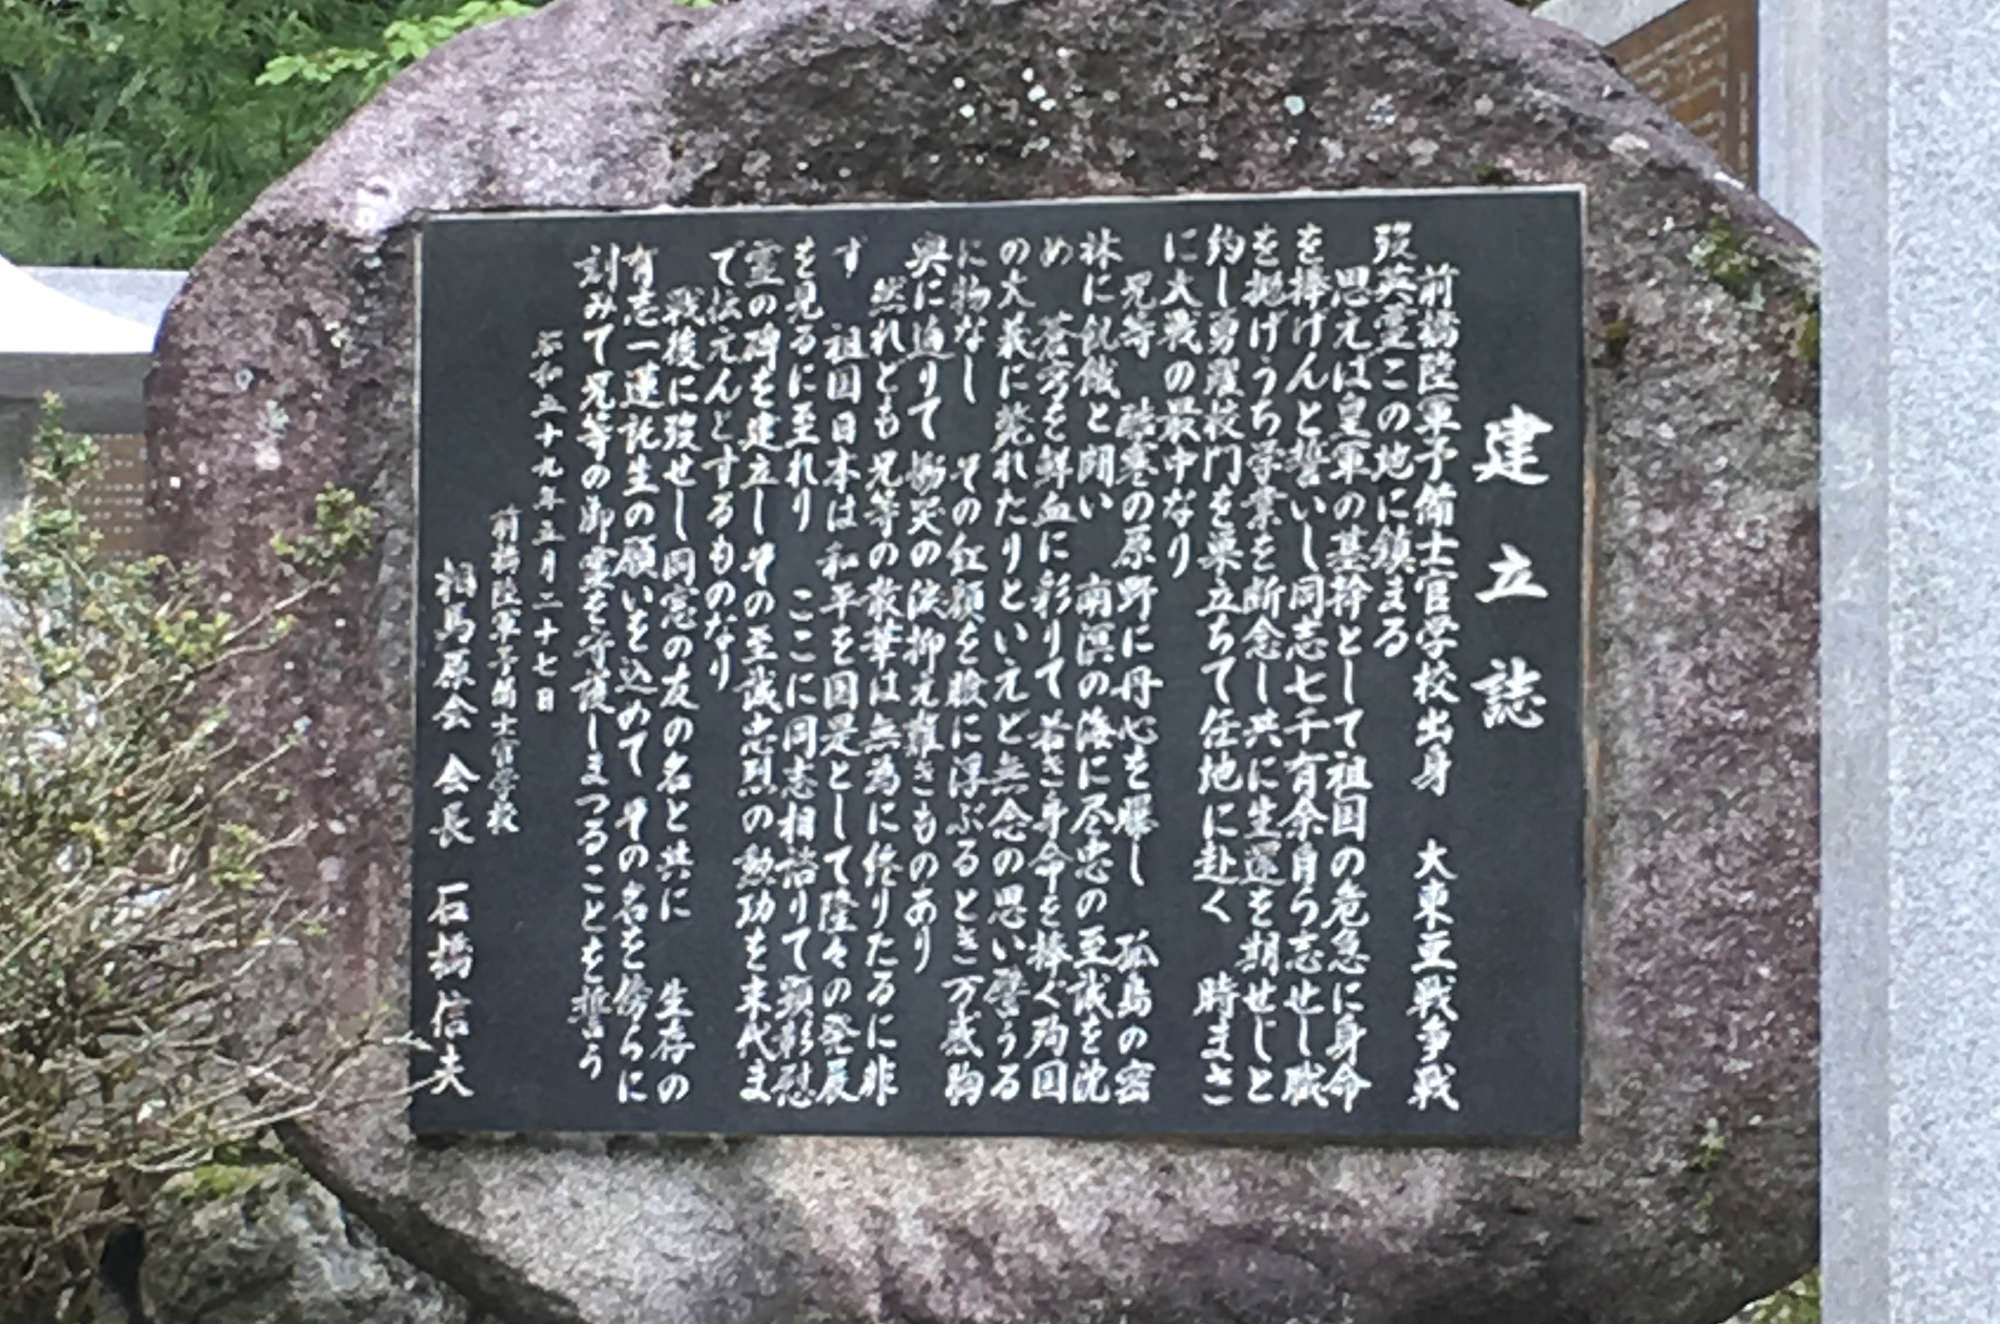 建立誌
前橋陸軍予備士官学校出身 大東亜戦争戦
歿英霊この地に鎮まる
思えば皇軍の基幹として祖国の危急に身命
を捧げんと誓いし同志七千有余自ら志せし職
を抛げうち学業を断念し共に生還を期せじと
約し勇躍校門を巣立ちて任地に赴く 時まさ
に大戦の最中なり
兄等 酷寒の原野に丹心を曝し 孤島の密
林に飢餓と闘い 南溟の海に尽忠の至誠を沈
め 蒼穹を鮮血に彩りて若き身命を捧ぐ殉国
の大義に斃れたりといえど無念の思い譬うる
に物なし その紅顔を瞼に浮ぶるとき万感胸
奥に迫りて慟哭の涙抑え難きものあり
然れども兄等の散華は無為に終りたるに非
ず 祖国日本は和平を国是として隆々の発展
を見るに至れり ここに同志相諮りて顕彰慰
霊の碑を建立しその至誠忠烈の勲功を末代ま
で伝えんとするものなり
戦後に歿せし同窓の友の名と共に 生存の
有志一蓮託生の願いを込めて その名を傍らに
刻みて兄等の御霊を守護しまつることを誓う
昭和五十九年五月二十七日
前橋陸軍予備士官学校
相馬原会 会長 石橋信夫